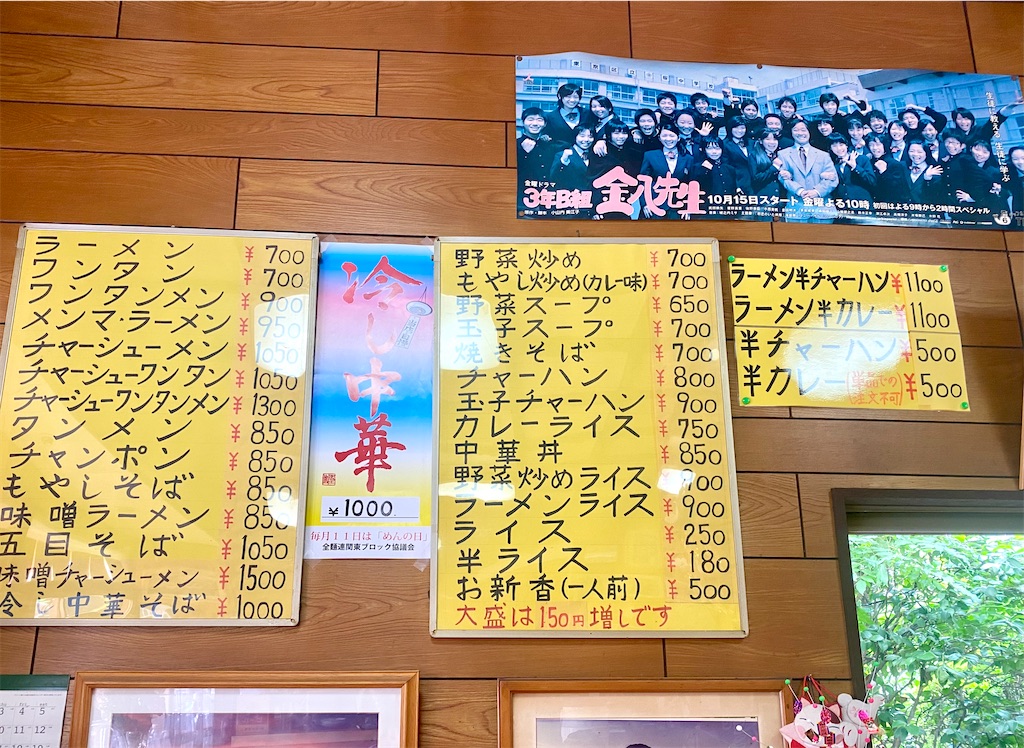 生徒に教える 生徒に学ぶ
金曜ドラマ
3年B組 金八先生
10月15日スタート 金曜よる10時 初回はよる9時から2時間スペシャル
ラーメン ¥700
ワンタン ¥700
ワンタンメン ¥900
メンマ・ラーメン ¥950
チャーシューメン ¥1050
チャーシューワンタン ¥1050
チャーシューワンタンメン ¥1300
タンメン ¥850
チャンポン ¥850
もやしそば ¥850
味噌ラーメン ¥850
五目そば ¥1050
味噌チャーシューメン ¥1500
冷し中華そば ¥1000
冷し中華
¥1000.
毎月11日は「めんの日」
全麺連関東ブロック協議会
野菜炒め ¥700
もやし炒め(カレー味) ¥700
野菜スープ ¥650
玉子スープ ¥700
焼きそば ¥700
チャーハン ¥800
玉子チャーハン ¥900
カレーライス ¥750
中華丼 ¥850
野菜炒めライス ¥900
ラーメンライス ¥900
ライス ¥250
半ライス ¥180
お新香(一人前) ¥500
大盛は150円増しです
ラーメン半チャーハン ¥1100
ラーメン半カレー ¥1100
半チャーハン ¥500
半カレー(単品での注文不可) ¥500
3 4 5
10 11 12